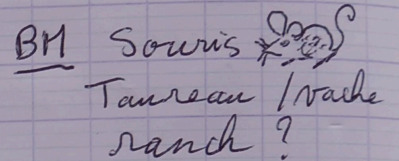 BM Souris
Taureau / vache
ranch ?